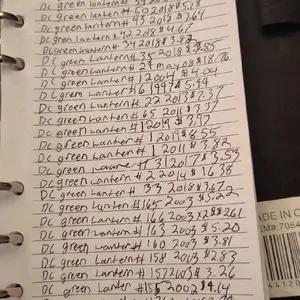 Dc green lantern #
Dc green lantern # 50 2018 $ 5.18
Dc green lantern # 43 2018 $ 7.64
Dc green lantern # 42 2018 $ 4.67
DC green lantern # 34 2018 $ 3.82
DC green lantern # 35 2018 $ 3.85
DC green lantern # 29 may 08 $ 18.76
DC green lantern # 1 2004 $ 4.04
DC green lantern # 1997 $ 5.49
DC green lantern # 22 2013 $ 2.37
DC green lantern # 65 2011 $ 7.37
DC green lantern # 1 2019 $ 3.97
DC green lantern # 1 2019 $ 8.55
DC green lantern # 1 2011 $ 3.82
DC green # 3 2017 $ 3.53
DC green lantern # 2 2014 $ 16.38
DC green lantern # 33 2018 $ 3.47
DC green lantern # 165 2003 $ 5.22
DC green lantern # 166 2003 X2 $ 2.61
DC green lantern # 163 2003 $ 5.20
DC green lantern # 160 2003 $ 3.81
DC green lantern # 158 2003 $ 2.83
DC green lantern # 157 2003 $ 3.26
DC green lantern # 155 2002 $ 4.14
ADE IN C
EM#:7064
4412